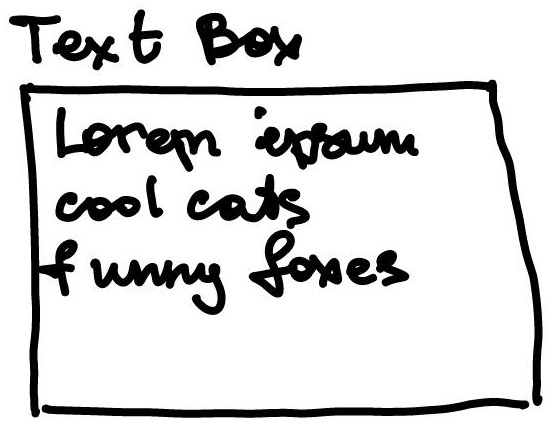 Text Box
Lorem ipsum
cool cats
funny foxes